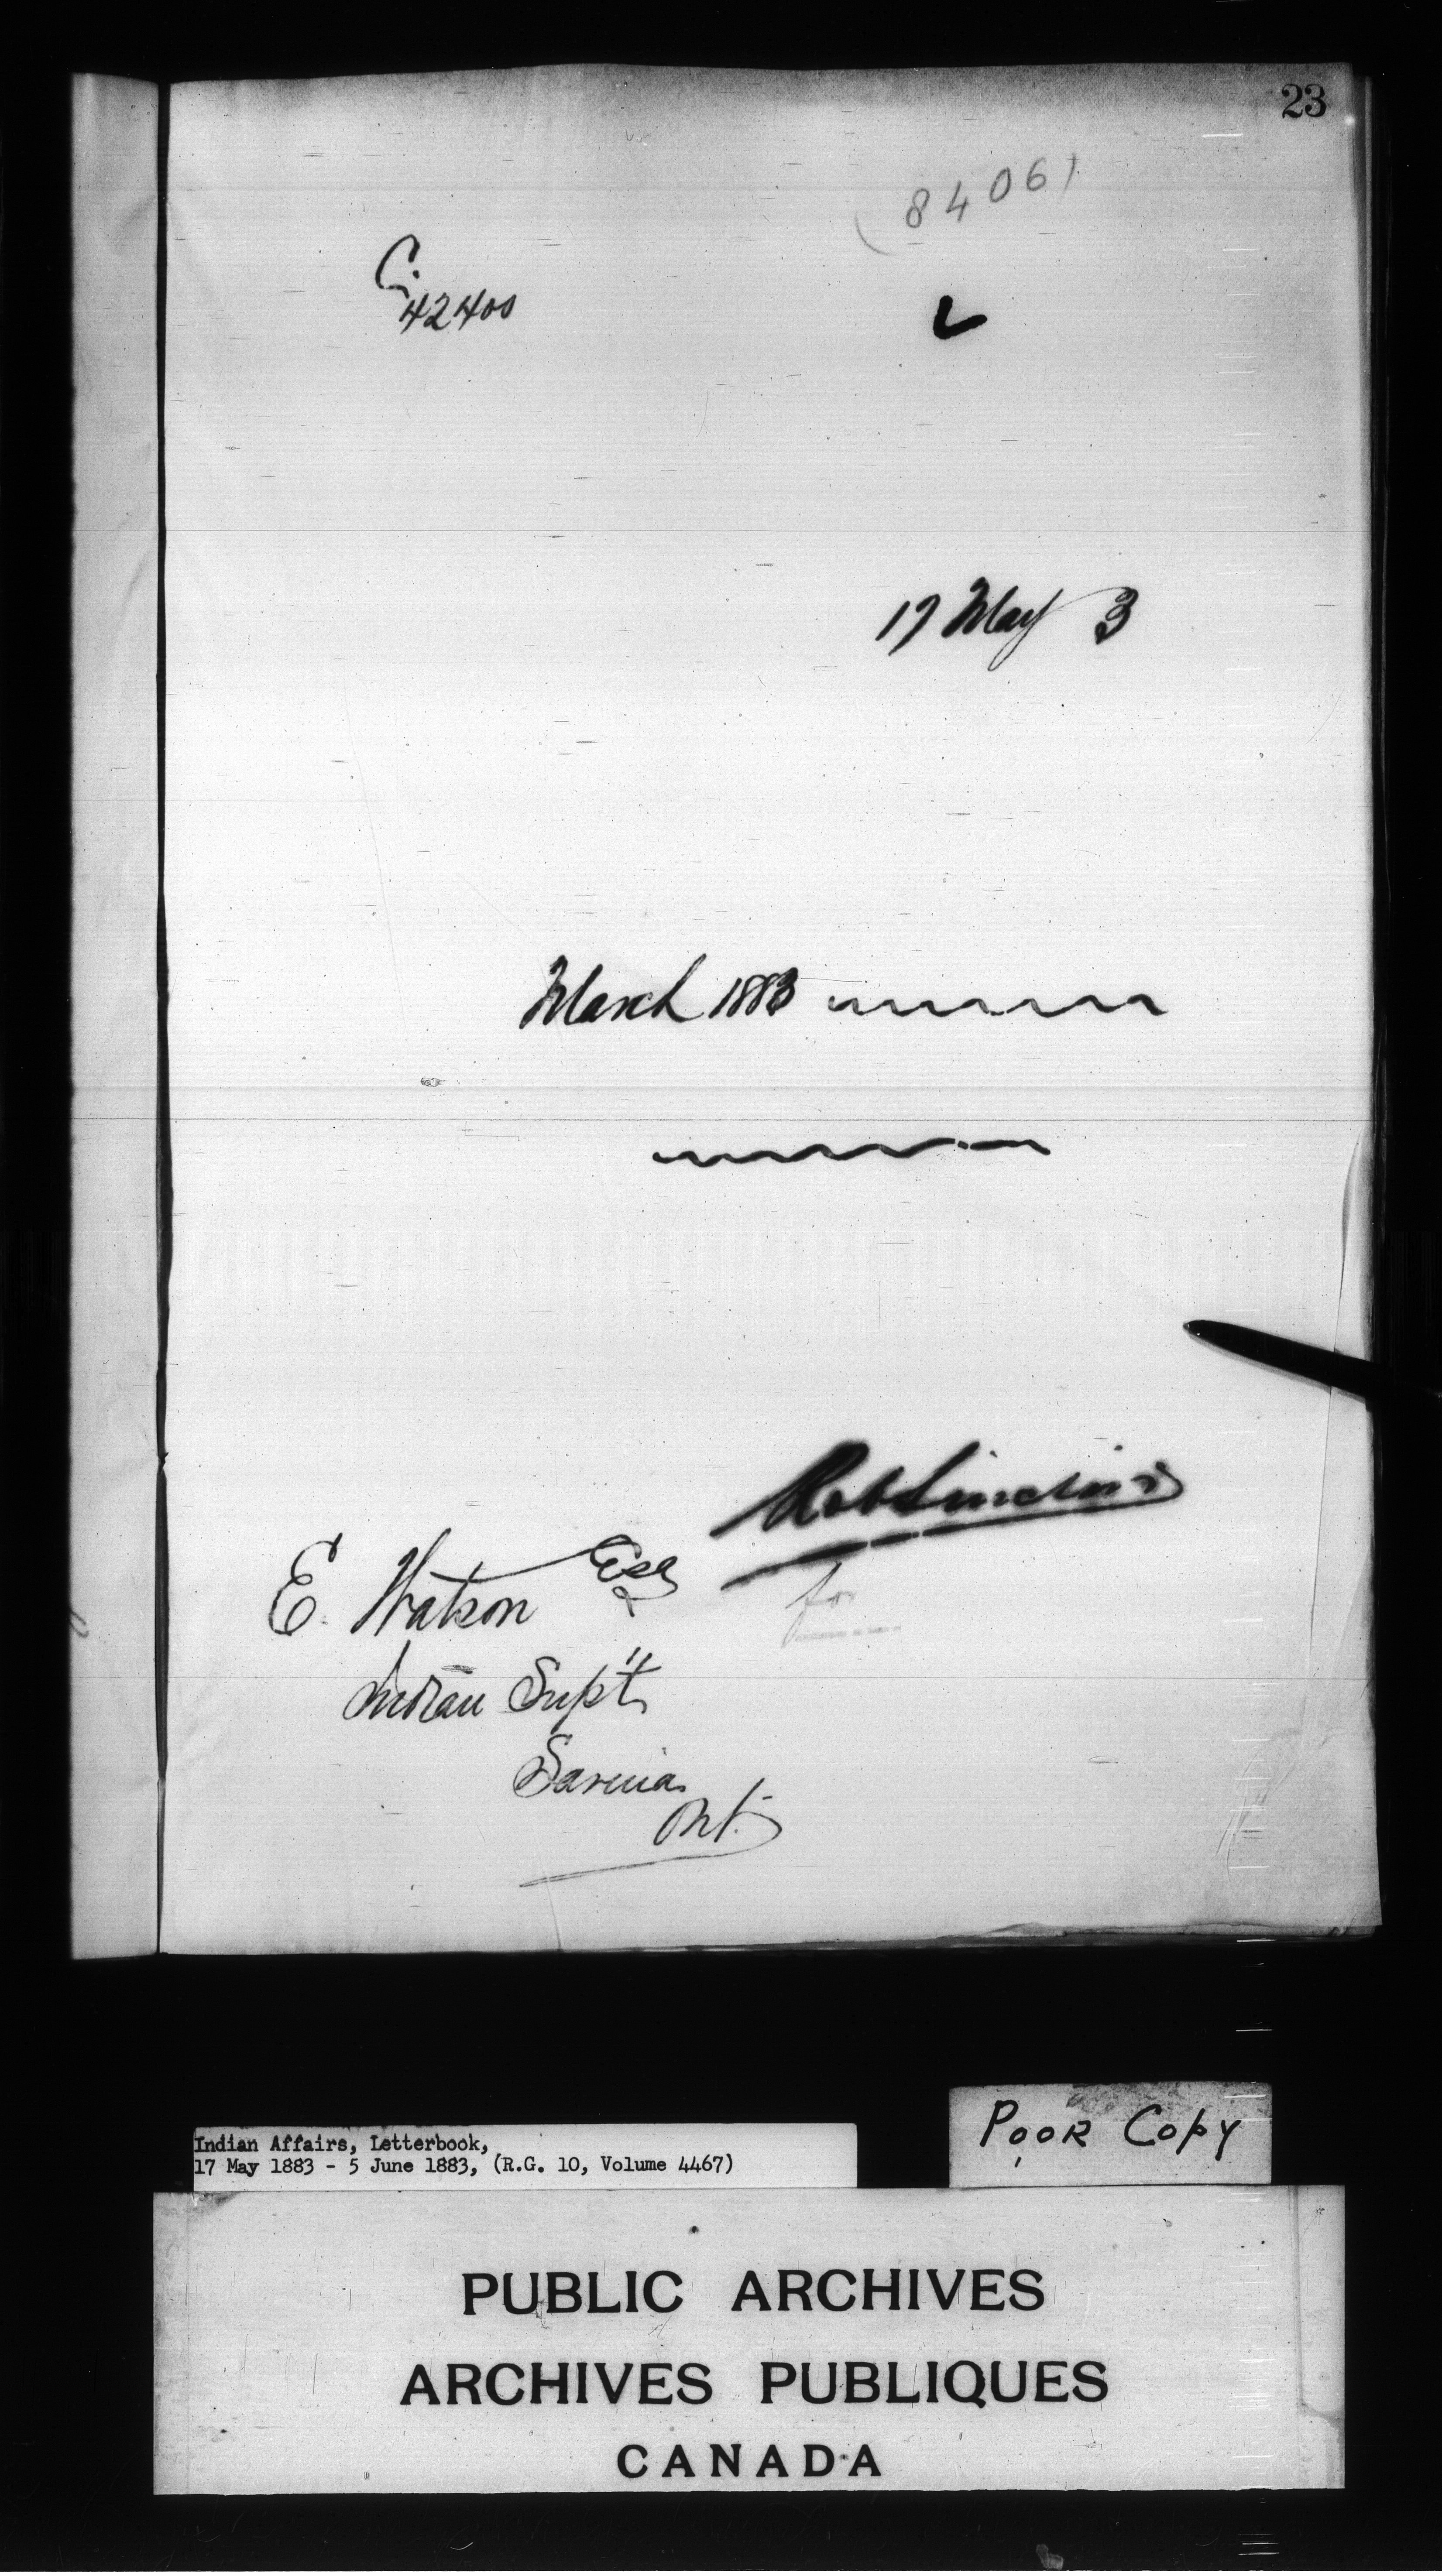 23
(8406)
C.
42400
17 May 3
March 1883
Rob Sinclair
for
E. Watson Esq
Indian Sup't
Sarnia
Ont.
Indian Affairs, Letterbook,
17 May 1883 - 5 June 1883, (R.G. 10, Volume 4467)
POOR COPY
PUBLIC ARCHIVES
ARCHIVES PUBLIQUES
CANADA